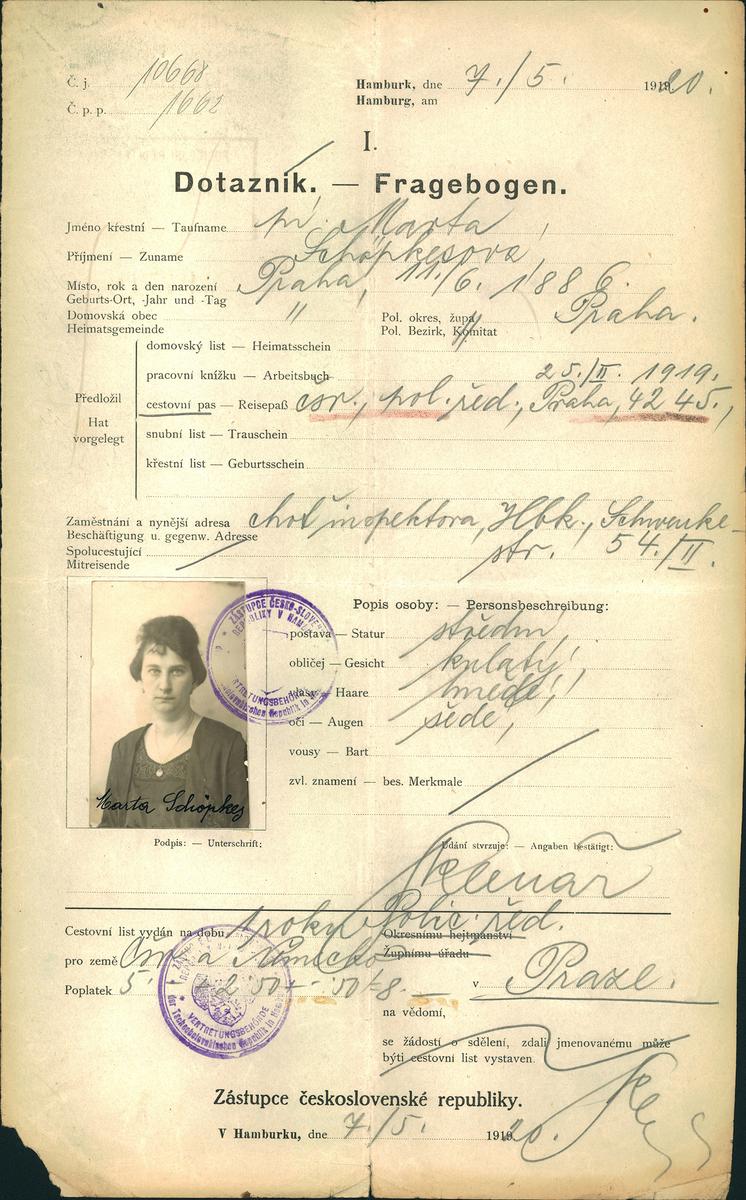 Č. j. 10668
Č. p. p. 1662
Hamburk, dne 7./5. 1920.
Hamburg, am
I.
Dotazník. — Fragebogen.
Jméno křestní — Taufname pí. Marta
Příjmení — Zuname Schöpkesova,
Místo, rok a den narození Praha, 11./6. 1886.
Geburts-Ort, -Jahr und -Tag
Domovská obec " Pol. okres, župa Praha.
Heimatsgemeinde Pol. Bezirk, Komitat
domovský list — Heimatsschein
pracovní knížku — Arbeitsbuch 25./II. 1919.
Předložil cestovní pas — Reisepaß čsr., pol. řed., Praha, 4245.,
Hat vorgelegt snubní list — Trauschein
křestní list — Geburtsschein
Zaměstnání a nynější adresa choť inspektora, Hbk., Schwenke-
Beschäftigung u. gegenw. Adresse str. 54./II.
Spolucestující
Mitreisende
ZÁSTUPCE ČESKO-SLOVENSKÉ REPUBLIKY V HAMBURKU
Popis osoby: — Personsbeschreibung:
postava — Statur střední,
obličej — Gesicht kulatý,
vlasy — Haare hnědé,
oči — Augen šedé,
vousy — Bart
zvl. znamení — bes. Merkmale
Marta Schöpkes
Podpis: — Unterschrift:
Udání stvrzuje: — Angaben bestätigt:
Sklenář
Cestovní list vydán na dobu 1 roku Polic. řed.
Okresnímu hejtmanství
pro země Čsr. a Německo Župnímu úřadu
Poplatek 5. v Praze.
VERTRETUNGSBEHÖRDE
der Tschechoslovakischen Republik in Hamburg
na vědomí,
se žádostí o sdělení, zdali jmenovanému může
býti cestovní list vystaven.
Zástupce československé republiky.
V Hamburku, dne 7./5. 1920.